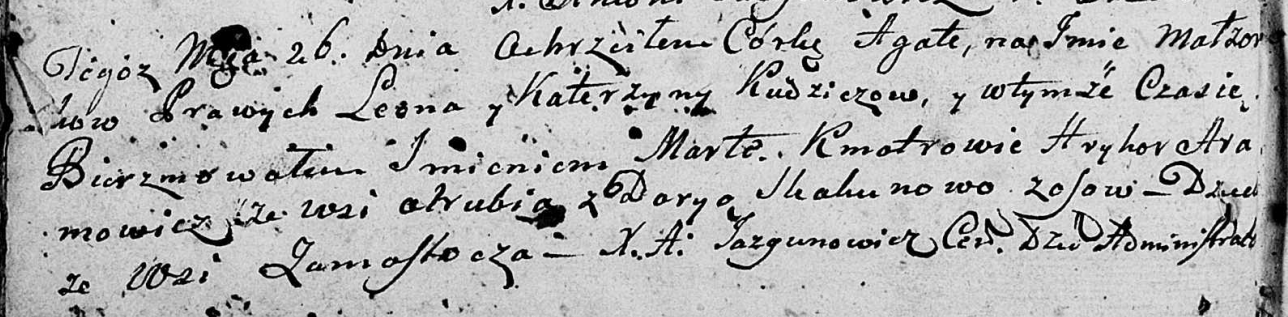 Tegoż Mca 26. Dnia Ochrzciłem Córkę Agatę, na Imie Małżon
kow Prawych Leona y Katerzyny Kudziczow, y wtymże Czasie
Bierzmowałem Imieniem Martę. Kmotrowie Hryhor Ara
mowicz ze wsi otrubia z Daryą Skakunowo
ze Wsi Zamostocza – X. A. Jazgunowicz Administrato